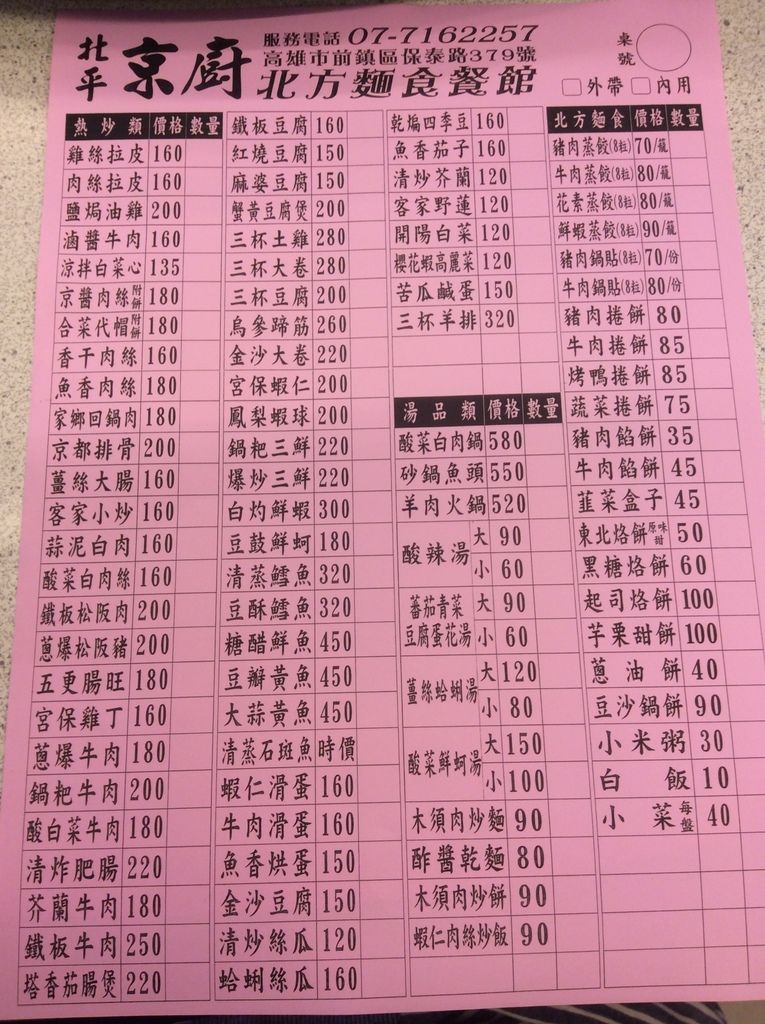 北平 京廚
服務電話 07-7162257
高雄市前鎮區保泰路379號
北方麵食餐館
桌號
□外帶 □內用
熱炒類 價格 數量
雞絲拉皮 160
肉絲拉皮 160
鹽焗油雞 200
滷醬牛肉 160
涼拌白菜心 135
京醬肉絲附餅 180
合菜代帽附餅 180
香干肉絲 160
魚香肉絲 180
家鄉回鍋肉 180
京都排骨 200
薑絲大腸 160
客家小炒 160
蒜泥白肉 160
酸菜白肉絲 160
鐵板松阪肉 200
蔥爆松阪豬 200
五更腸旺 180
宮保雞丁 160
蔥爆牛肉 180
鍋粑牛肉 200
酸白菜牛肉 180
清炸肥腸 220
芥蘭牛肉 180
鐵板牛肉 250
塔香茄腸煲 220
鐵板豆腐 160
紅燒豆腐 150
麻婆豆腐 150
蟹黃豆腐煲 200
三杯土雞 280
三杯大卷 280
三杯豆腐 200
烏參蹄筋 260
金沙大卷 220
宮保蝦仁 200
鳳梨蝦球 200
鍋粑三鮮 220
爆炒三鮮 220
白灼鮮蝦 300
豆鼓鮮蚵 180
清蒸鱈魚 320
豆酥鱈魚 320
糖醋鮮魚 450
豆瓣黃魚 450
大蒜黃魚 450
清蒸石斑魚 時價
蝦仁滑蛋 160
牛肉滑蛋 160
魚香烘蛋 150
金沙豆腐 150
清炒絲瓜 120
蛤蜊絲瓜 160
乾煸四季豆 160
魚香茄子 160
清炒芥蘭 120
客家野蓮 120
開陽白菜 120
櫻花蝦高麗菜 120
苦瓜鹹蛋 150
三杯羊排 320
湯品類 價格 數量
酸菜白肉鍋 580
砂鍋魚頭 550
羊肉火鍋 520
酸辣湯 大 90
小 60
蕃茄青菜豆腐蛋花湯 大 90
小 60
薑絲蛤蜊湯 大 120
小 80
酸菜鮮蚵湯 大 150
小 100
木須肉炒麵 90
酢醬乾麵 80
木須肉炒餅 90
蝦仁肉絲炒飯 90
北方麵食 價格 數量
豬肉蒸餃(8粒) 70/籠
牛肉蒸餃(8粒) 80/籠
花素蒸餃(8粒) 80/籠
鮮蝦蒸餃(8粒) 90/籠
豬肉鍋貼(8粒) 70/份
牛肉鍋貼(8粒) 80/份
豬肉捲餅 80
牛肉捲餅 85
烤鴨捲餅 85
蔬菜捲餅 75
豬肉餡餅 35
牛肉餡餅 45
韮菜盒子 45
東北烙餅原味 甜 50
黑糖烙餅 60
起司烙餅 100
芋栗甜餅 100
蔥油餅 40
豆沙鍋餅 90
小米粥 30
白飯 10
小菜每盤 40